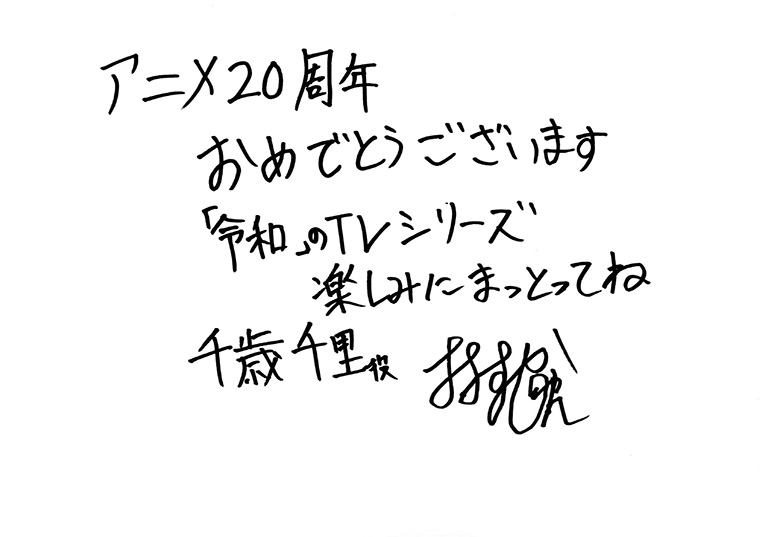 アニメ20周年
おめでとうございます
「令和」のTVシリーズ
楽しみにまっとってね
千歳千里役